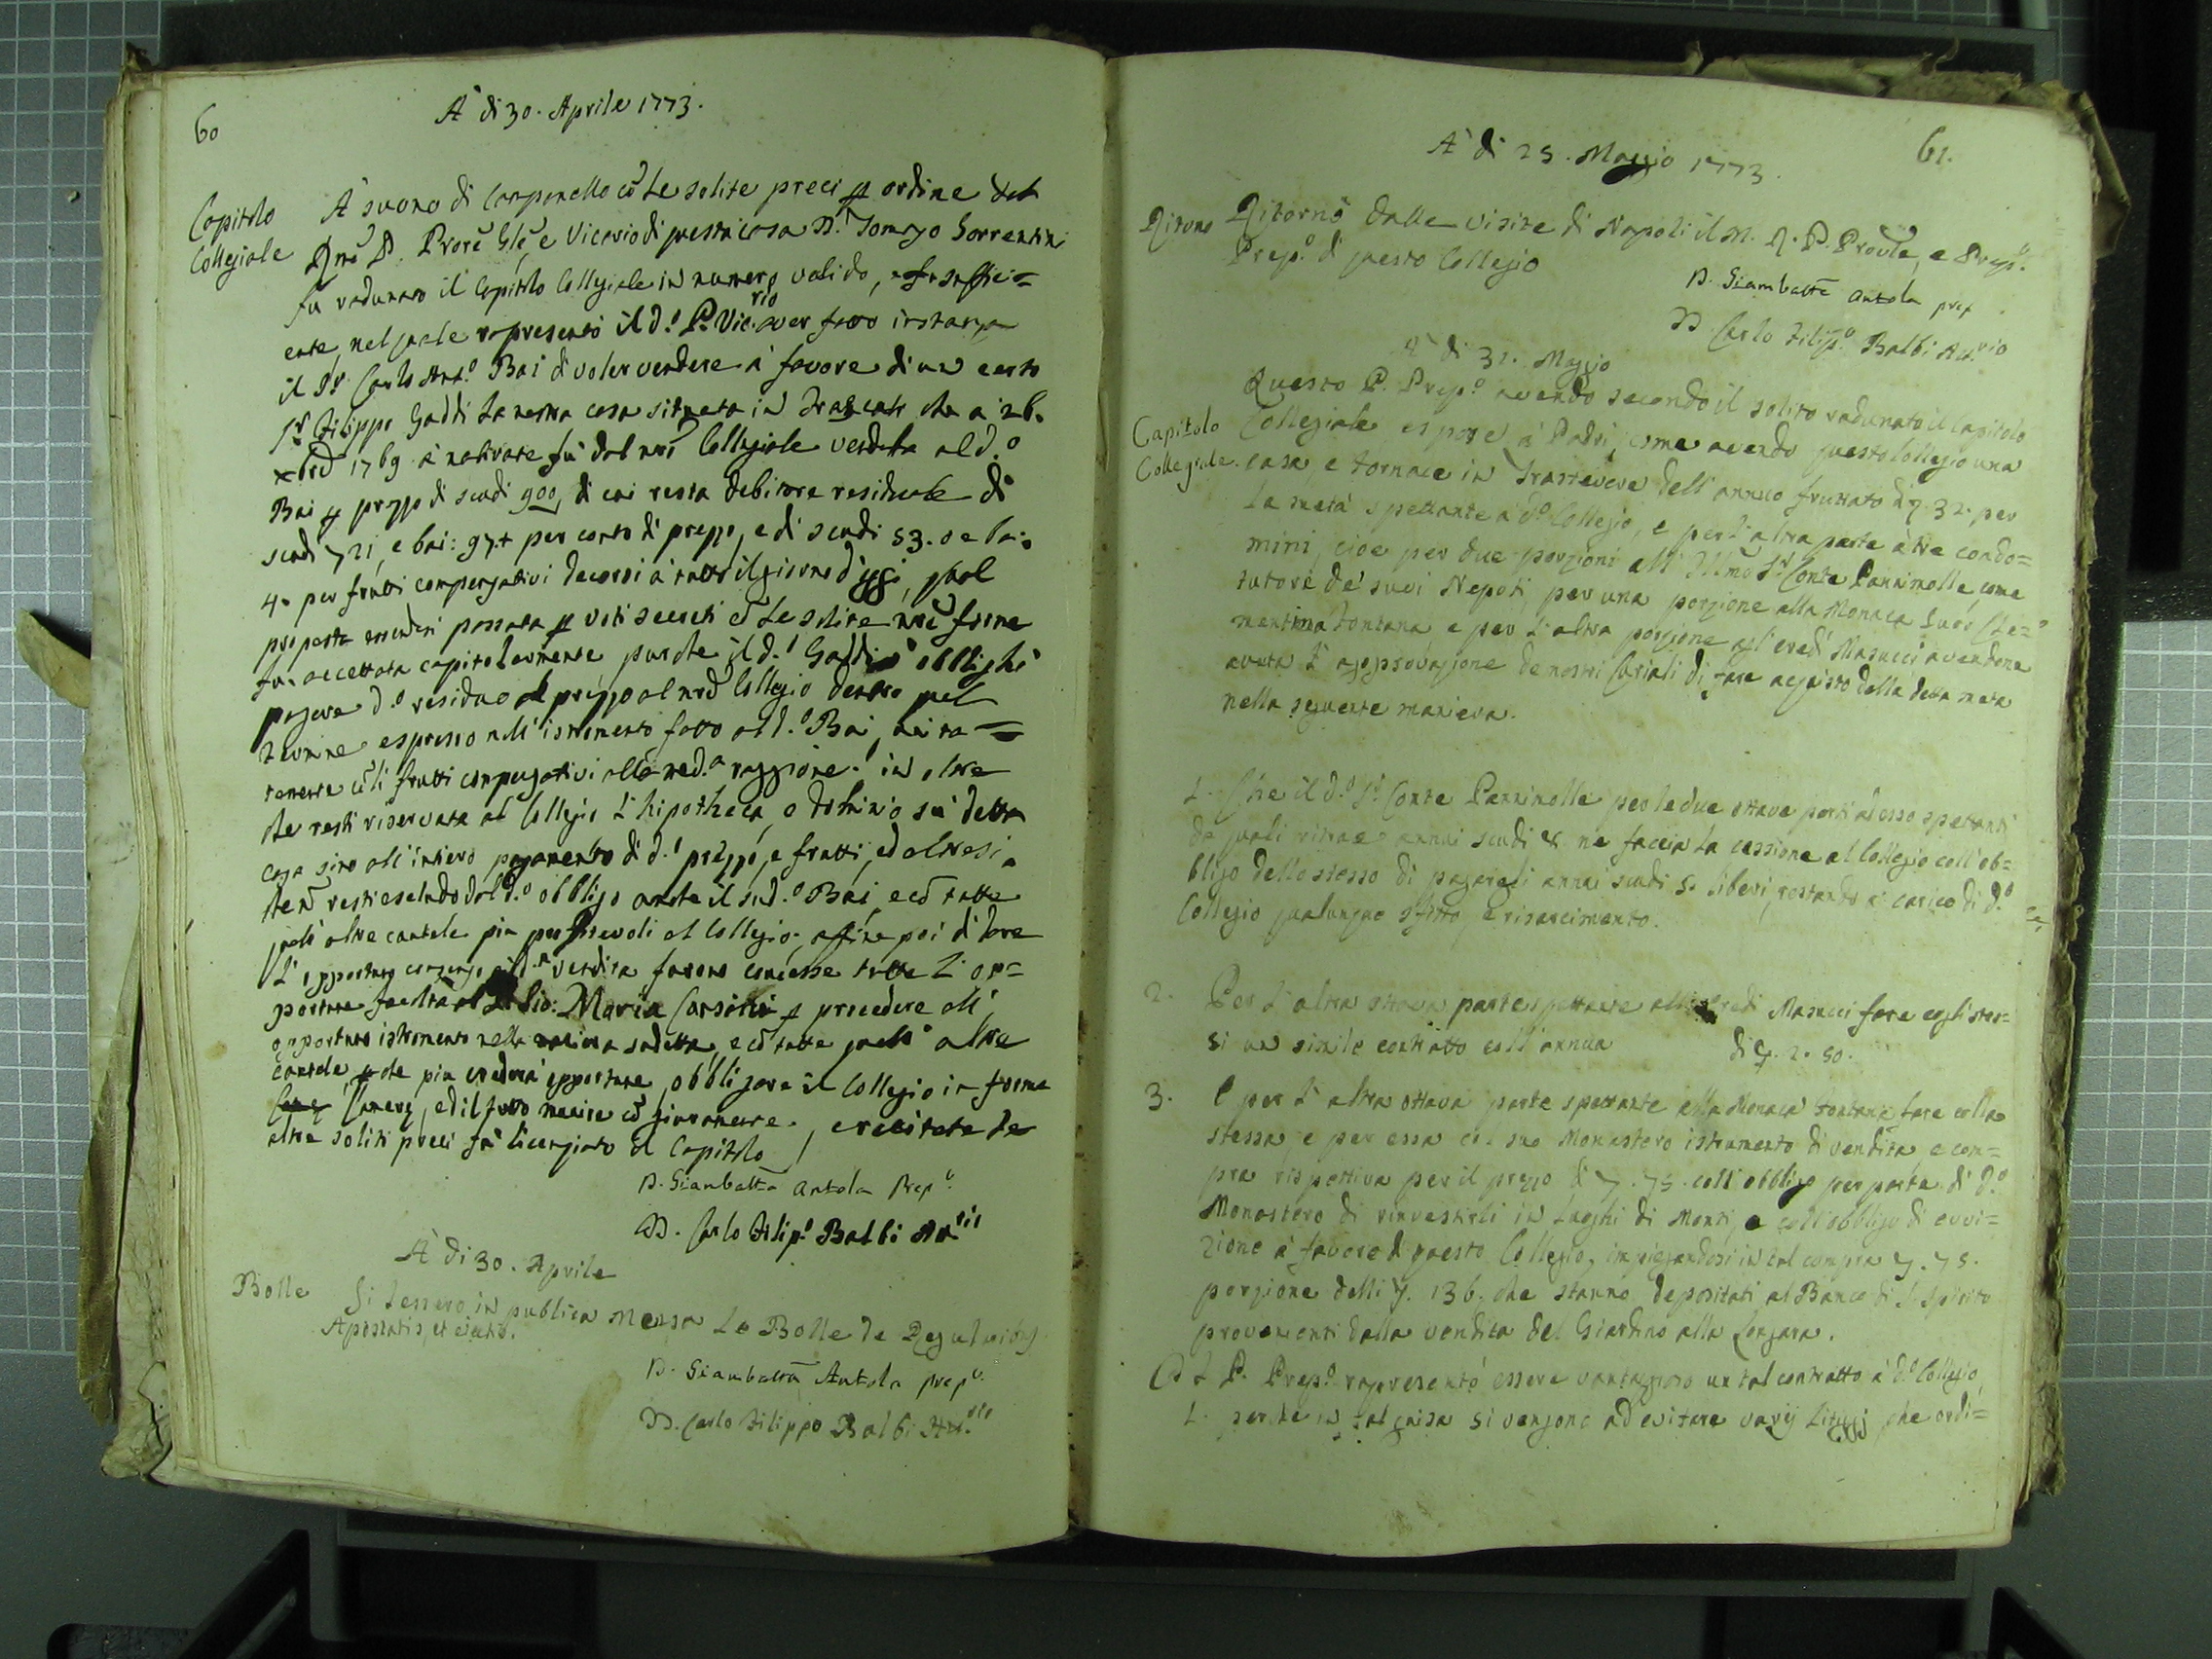 60
A' di 30. Aprile 1773.
Capitolo
Collegiale
A' suono di Campanello cō le solite preci ꝑ ordine del
Rmo P. Prore Gle, e Vicario di questa casa D. Tomaso Sorrentini
fu radunato il Capitolo Collegiale in numero valido, e suffici=
ente, nel quale rapresentò il d.o P. Vic.rio aver fatto instanza
il Sr. Carlo Ant.o Bai di voler vendere à favore di un certo
Sr. Filippo Gaddi la nostra casa situata in Frascati che a 26.
xbre 1769 à nativitate fù dal nro Collegiale venduta al d.o
Bai ꝑ prezzo di scudi 900, di cui resta debitore residuale di
scudi 721, e bai: 97.+ per conto di prezzo, e di scudi 53. e bai:
4. per frutti compensativi decorsi à tutto il giorno d'oggi, qual
proposta essendosi passata ꝑ voti secreti cō le solite nre forme
fu accettata capitolarmente purche il d.o Gaddi s' obblighi
pagare d.o residuo di prezzo al nro Collegio dentro quel
termine espresso nell' istromento fatto al d.o Bai, unita=
mente cō li frutti compensativi alla med.a raggione. in oltre
che resti riservata al Collegio l' hipotheca, e dominio sù detta
casa sino all' intiero pagamento di d.o prezzo, e frutti, ed altresi
che nō resti escluso dal d.o obbligo anche il sud.o Bai, e cō tutte
quell' altre cautele più profittevoli al Collegio; affine poi di dare
l' opportuno consenso à d.a vendita furono concesse tutte l' op=
portune facoltà al Sig: Maria Corsetti ꝑ procedere all'
opportuno istromento nella maniera sudetta, e cō tutte quell' altre
cautele, che più crederà opportune, obbligare il Collegio in forma
Camerę, ed il tutto munire cō giuramento., e recitate le
altre solite preci fù licenziato il Capitolo
D. Giambatta Antola Prep.o
D. Carlo Filip.o Balbi Att.rio
A' di 30. Aprile
Bolle
Si lessero in publica Mensa le Bolle de Regularibus
Apostatis, et ejectis.
D. Giambatta Antola prep.o
D. Carlo Filippo Balbi Att.rio
61.
A' di 25. Maggio 1773.
Ritorno
Ritornò dalle visite di Napoli il M. R. P. Provle, e Prep.o
Prep.o di questo Collegio
D. Giambatta Antola prep
D. Carlo Filip.o Balbi Att.rio
A' di 31. Maggio
Capitolo
Collegiale.
Questo P. Prep.o avendo secondo il solito radunato il Capitolo
Collegiale espose à Padri, come avendo questo Collegio una
casa, e fornace in Trastevere dell' annuo fruttato di 32. per
la metà spettante à d.o Collegio, e per l'altra parte à tre condo=
mini, cioe per due porzioni all' Illmo Sr. Conte Pannimolle, come
tutore de' suoi Nepoti, per una porzione alla Monaca Suor Cle=
mentina Fontana e per l' altra porzione agl' eredi Masucci avendone
avuta l' approvazione de nostri Curiali di fare acquisto della detta metà
nella seguente maniera.
1. Che il d.o Sr. Conte Pannimolle per le due ottave parti ad esso spettanti
da quali ritrae annui scudi 8 ne faccia la cessione al Collegio coll' ob=
bligo dello stesso di pagargli annui scudi 5. liberi, restando à carico di d.o
Collegio qualunque sfitto, e risarcimento.
2. Per l' altra ottava parte spettante alli eredi Masucci fare cogli stes=
si un simile contratto coll' annua di 2. 50.
3. E per l' altra ottava parte spettante alla Monaca Fontana fare colla
stessa, e per essa col suo Monastero istrumento di vendita e com=
pra rispettiva per il prezzo di 75. coll' obbligo per parte di d.o
Monastero di rinvestirli in Luoghi di Monti, e coll' obbligo di evvi=
zione à favore di questo Collegio, impiegandosi in tal compra 75.
porzione delli 136. che stanno depositati al Banco di S. Spirito
provenienti dalla vendita del Giardino alla Longara.
Ed il P. Prep.o rapresentò essere vantaggioso un tal contratto à d.o Collegio,
1. perche in tal guisa si vengono ad evitare varij litiggj che ordi=